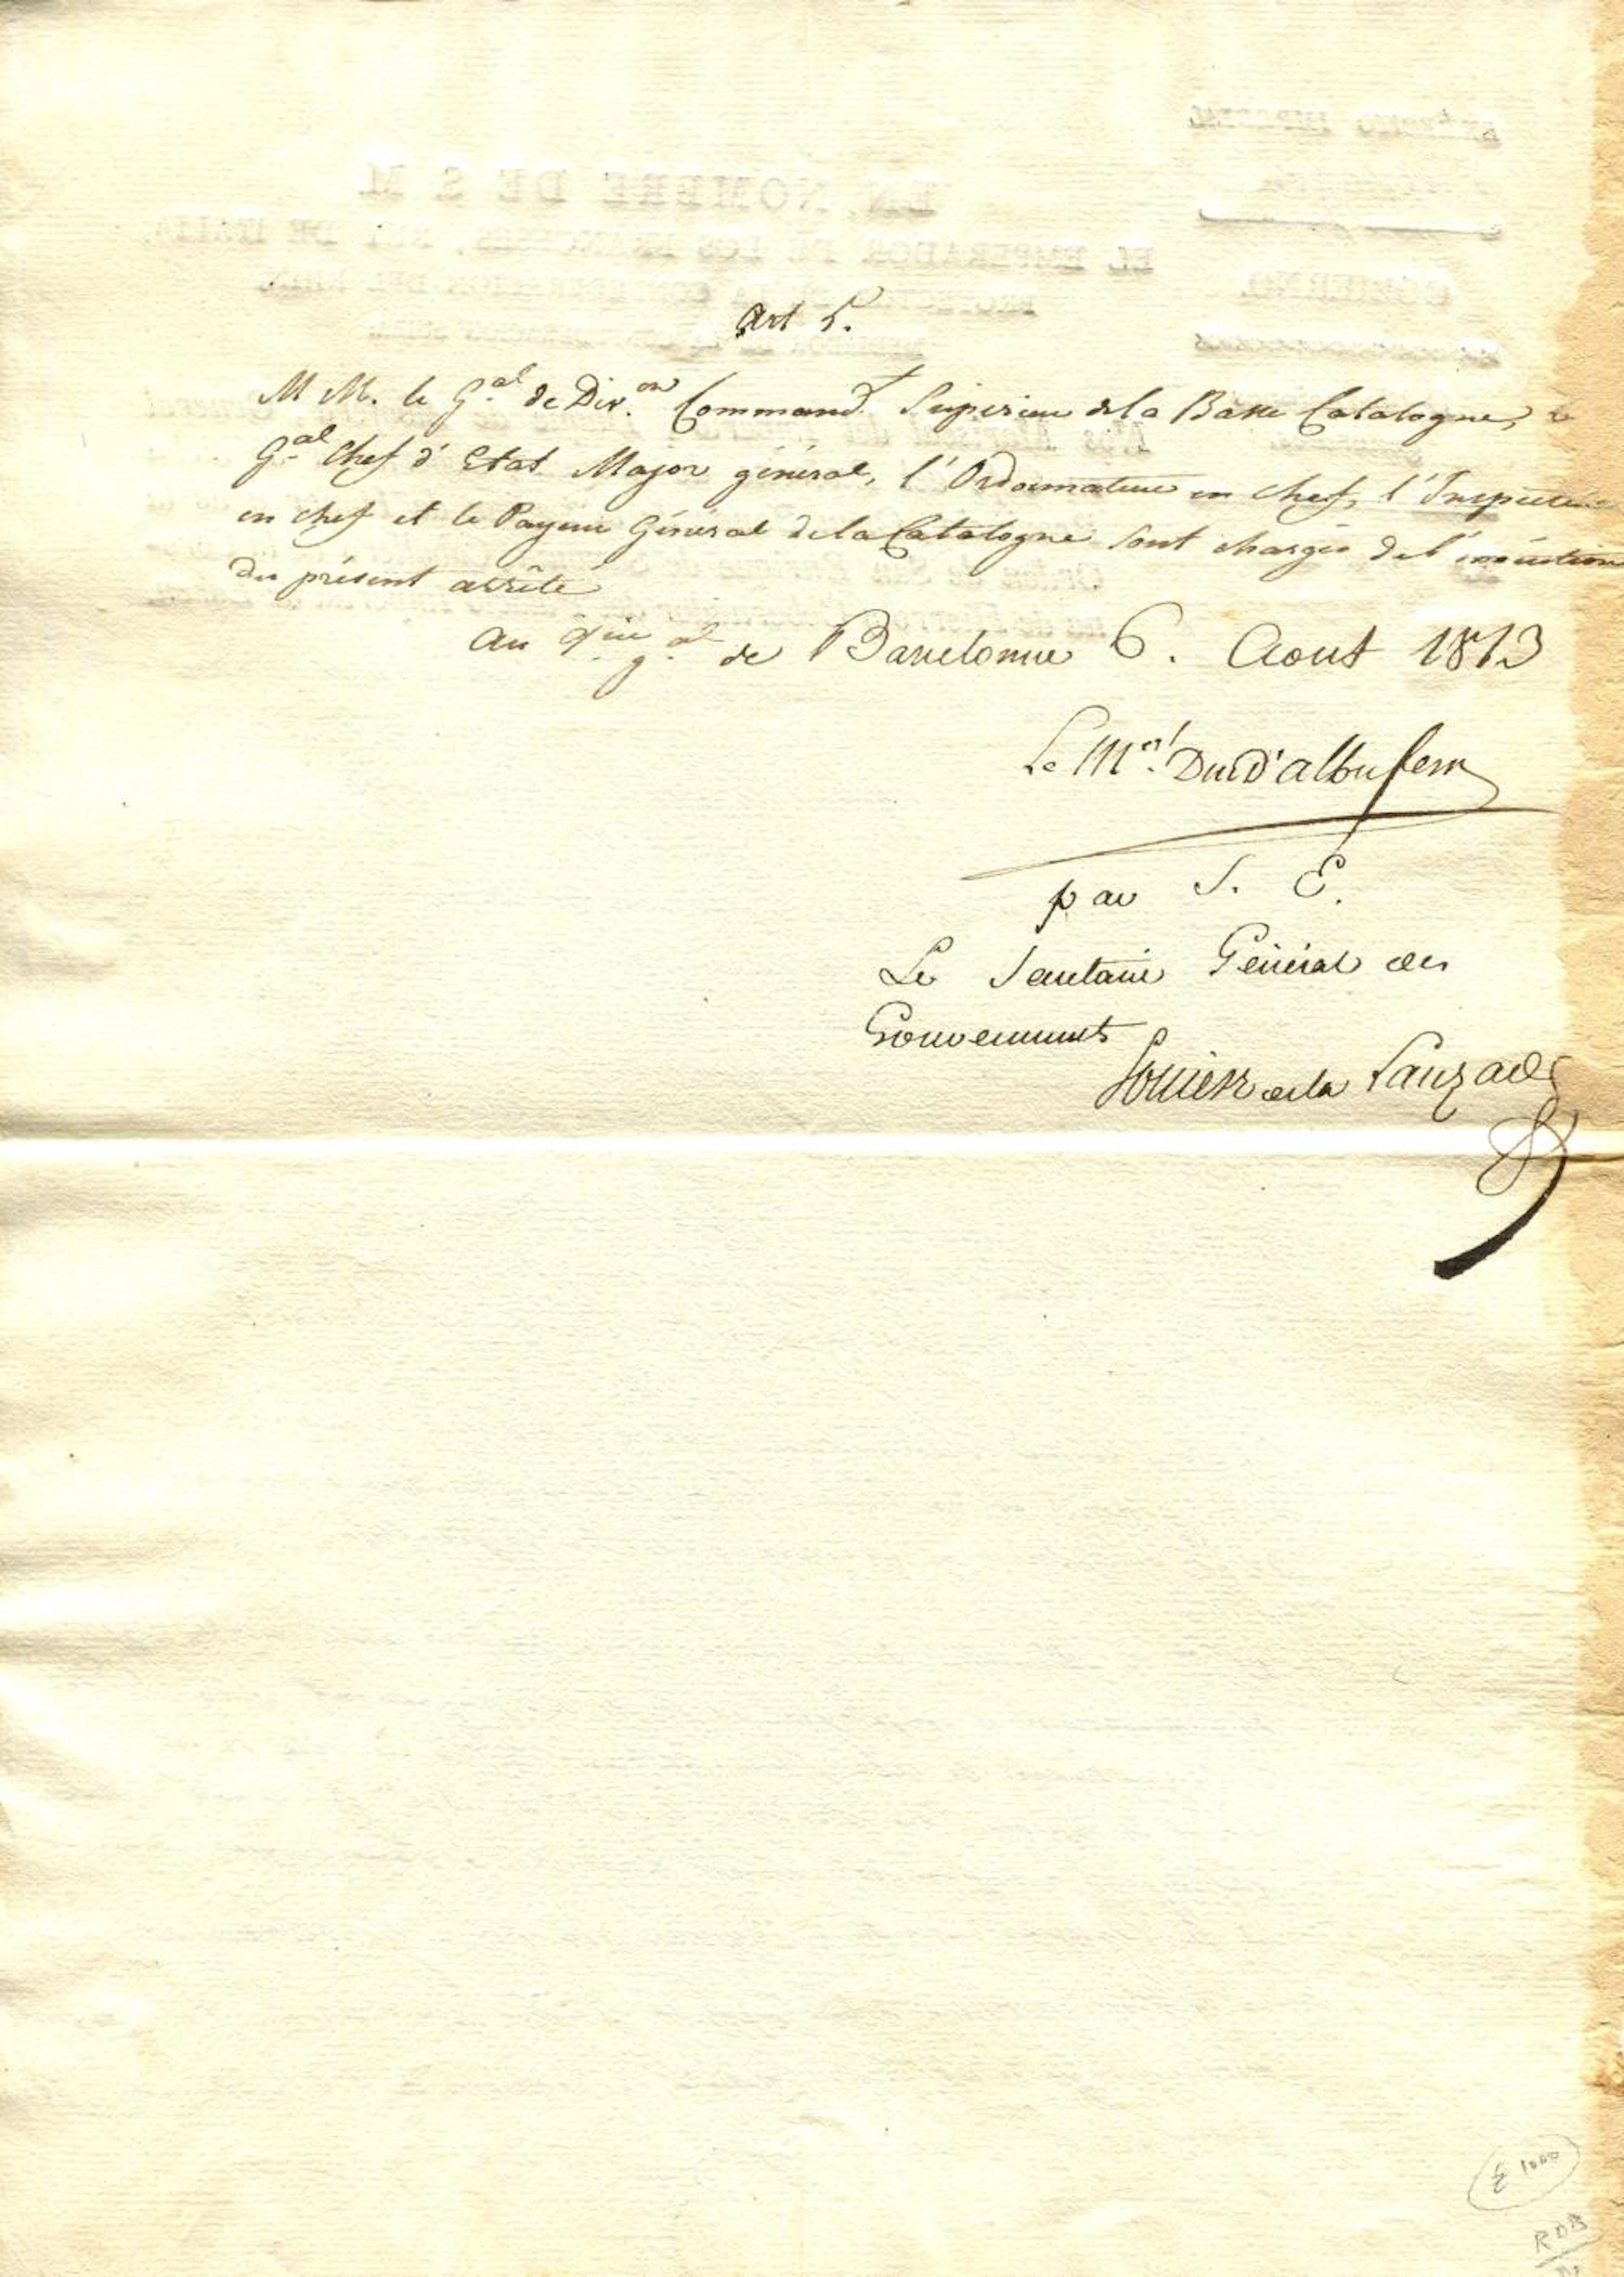 Art 5.
M M. le G.al de Div.on Command.t Supérieur de la Basse Catalogne, le
G.al Chef d'Etat Major général, l'Ordonnateur en chef, l'Inspecteur
en chef et le Payeur Général de la Catalogne sont chargés de l'exécution
du présent arrêté
Au q.ier g.al de Barcelonne 6. Aout 1813
Le M.al Duc d'albufera
par S. E.
Le Secretaire Général des
Gouvernements
de la Lauzade
EN NOMBRE DE S M
EL EMPERADOR DE LOS FRANCESES, REY DE ITALIA,
GOBIERNO.
£ 1000
RDB